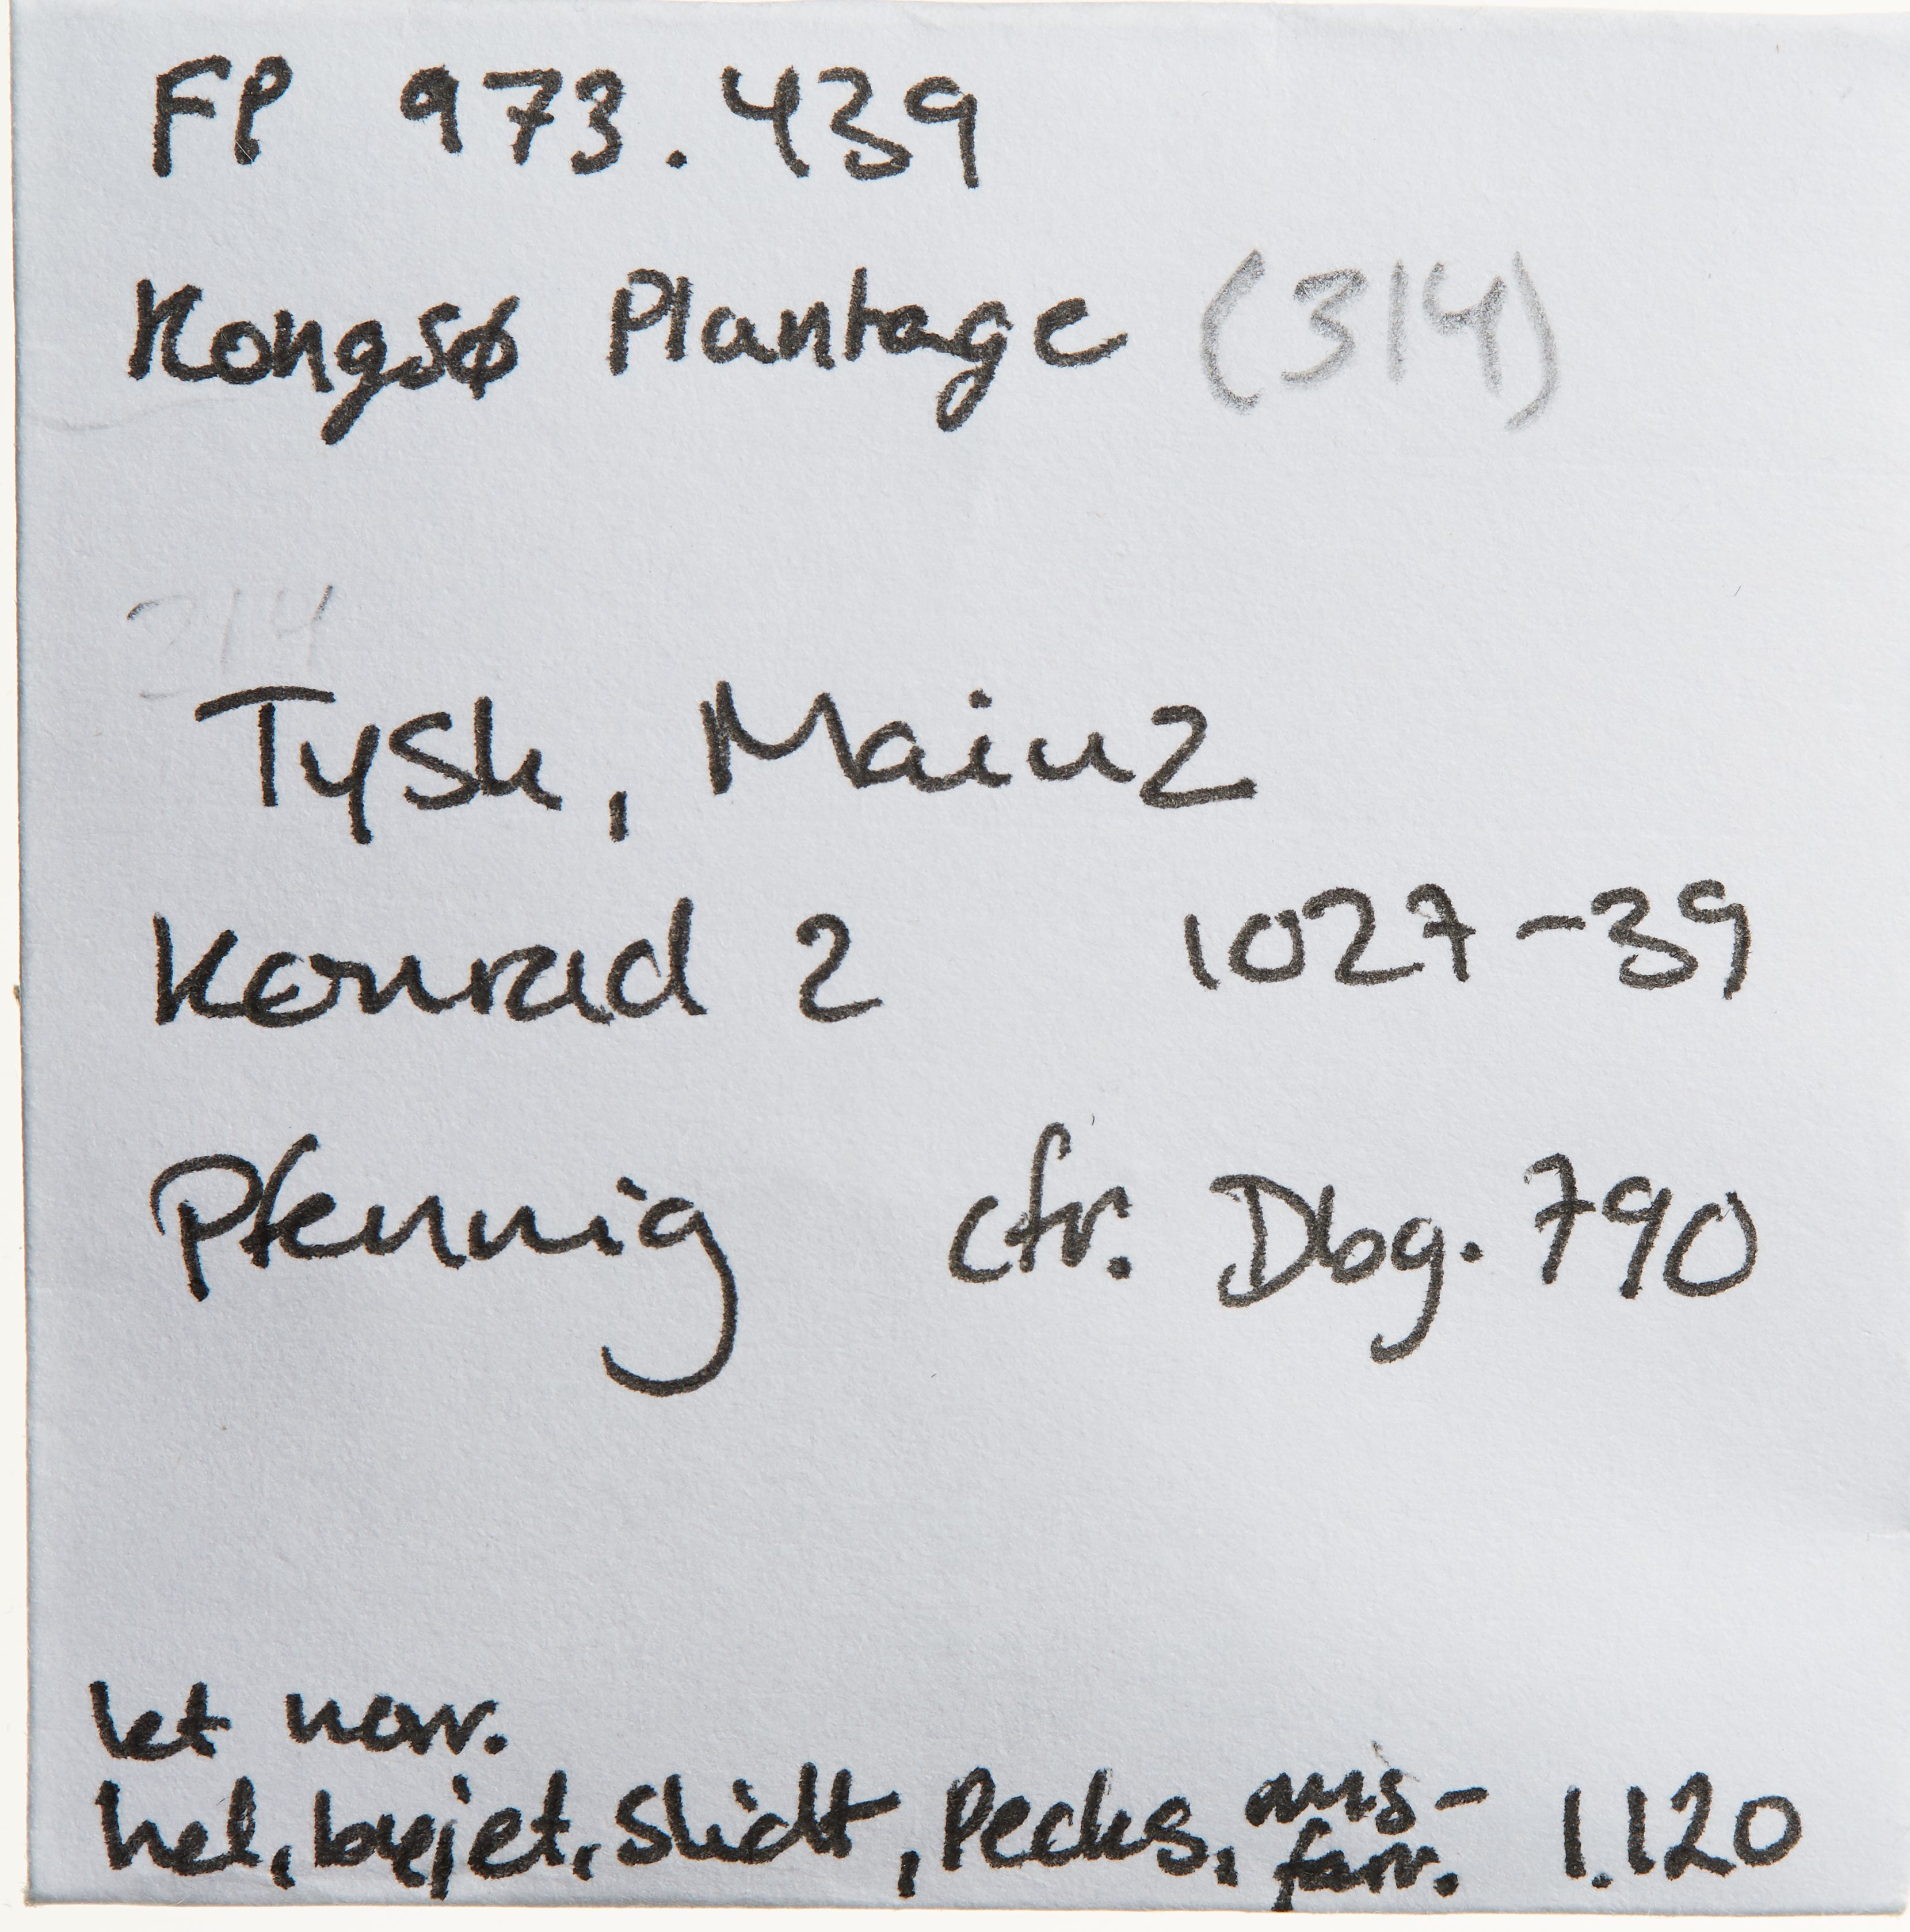 FP 973.439
Kongsø Plantage (314)
314
Tysk, Mainz
Konrad 2 1027-39
Pfennig cfr. Dbg. 790
let korr.
hel, bøjet, slidt, Pecks, mis-
farv. 1.120